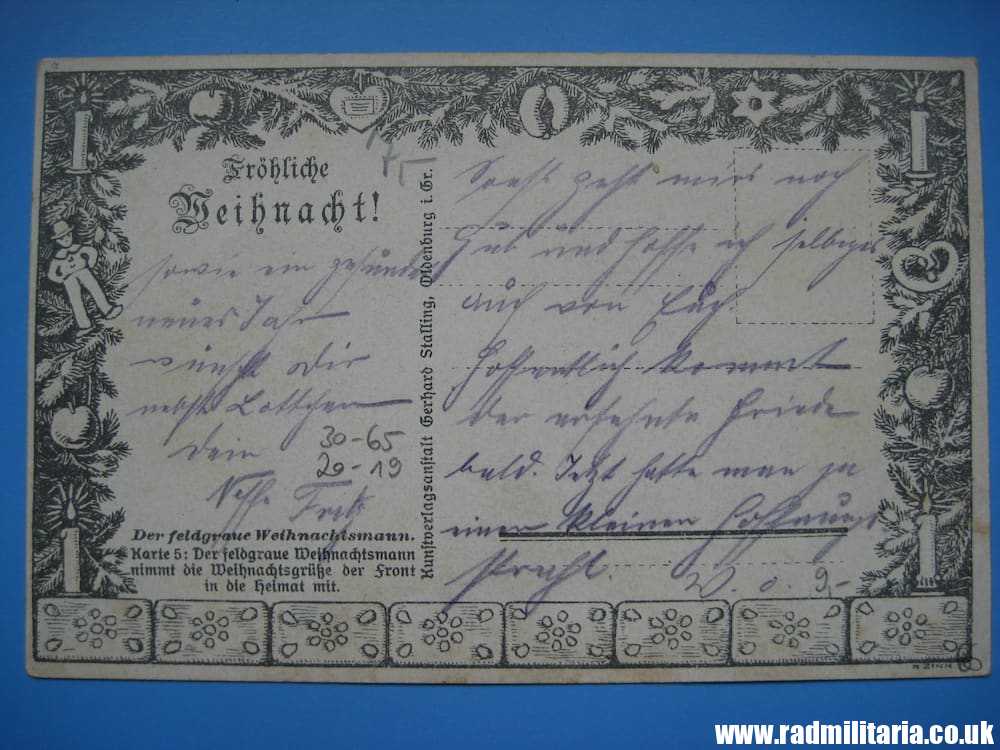 Fröhliche
Weihnacht!
sowie ein gesundes
neues Jahr
wünscht Dir
nebst Lottchen
Dein
Neffe Fritz
30-65
20-19
Der feldgraue Weihnachtsmann.
Karte 5: Der feldgraue Weihnachtsmann
nimmt die Weihnachtsgrüße der Front
in die Heimat mit.
Kunstverlagsanstalt Gerhard Stalling, Oldenburg i. Gr.
Sonst geht mirs noch
gut und hoffe ich selbiges
auch von Euch
Hoffentlich kommt
der ersehnte Friede
bald. Jetzt hatte man ja
einen kleinen Hoffnungs
strahl.
9,-
www.radmilitaria.co.uk